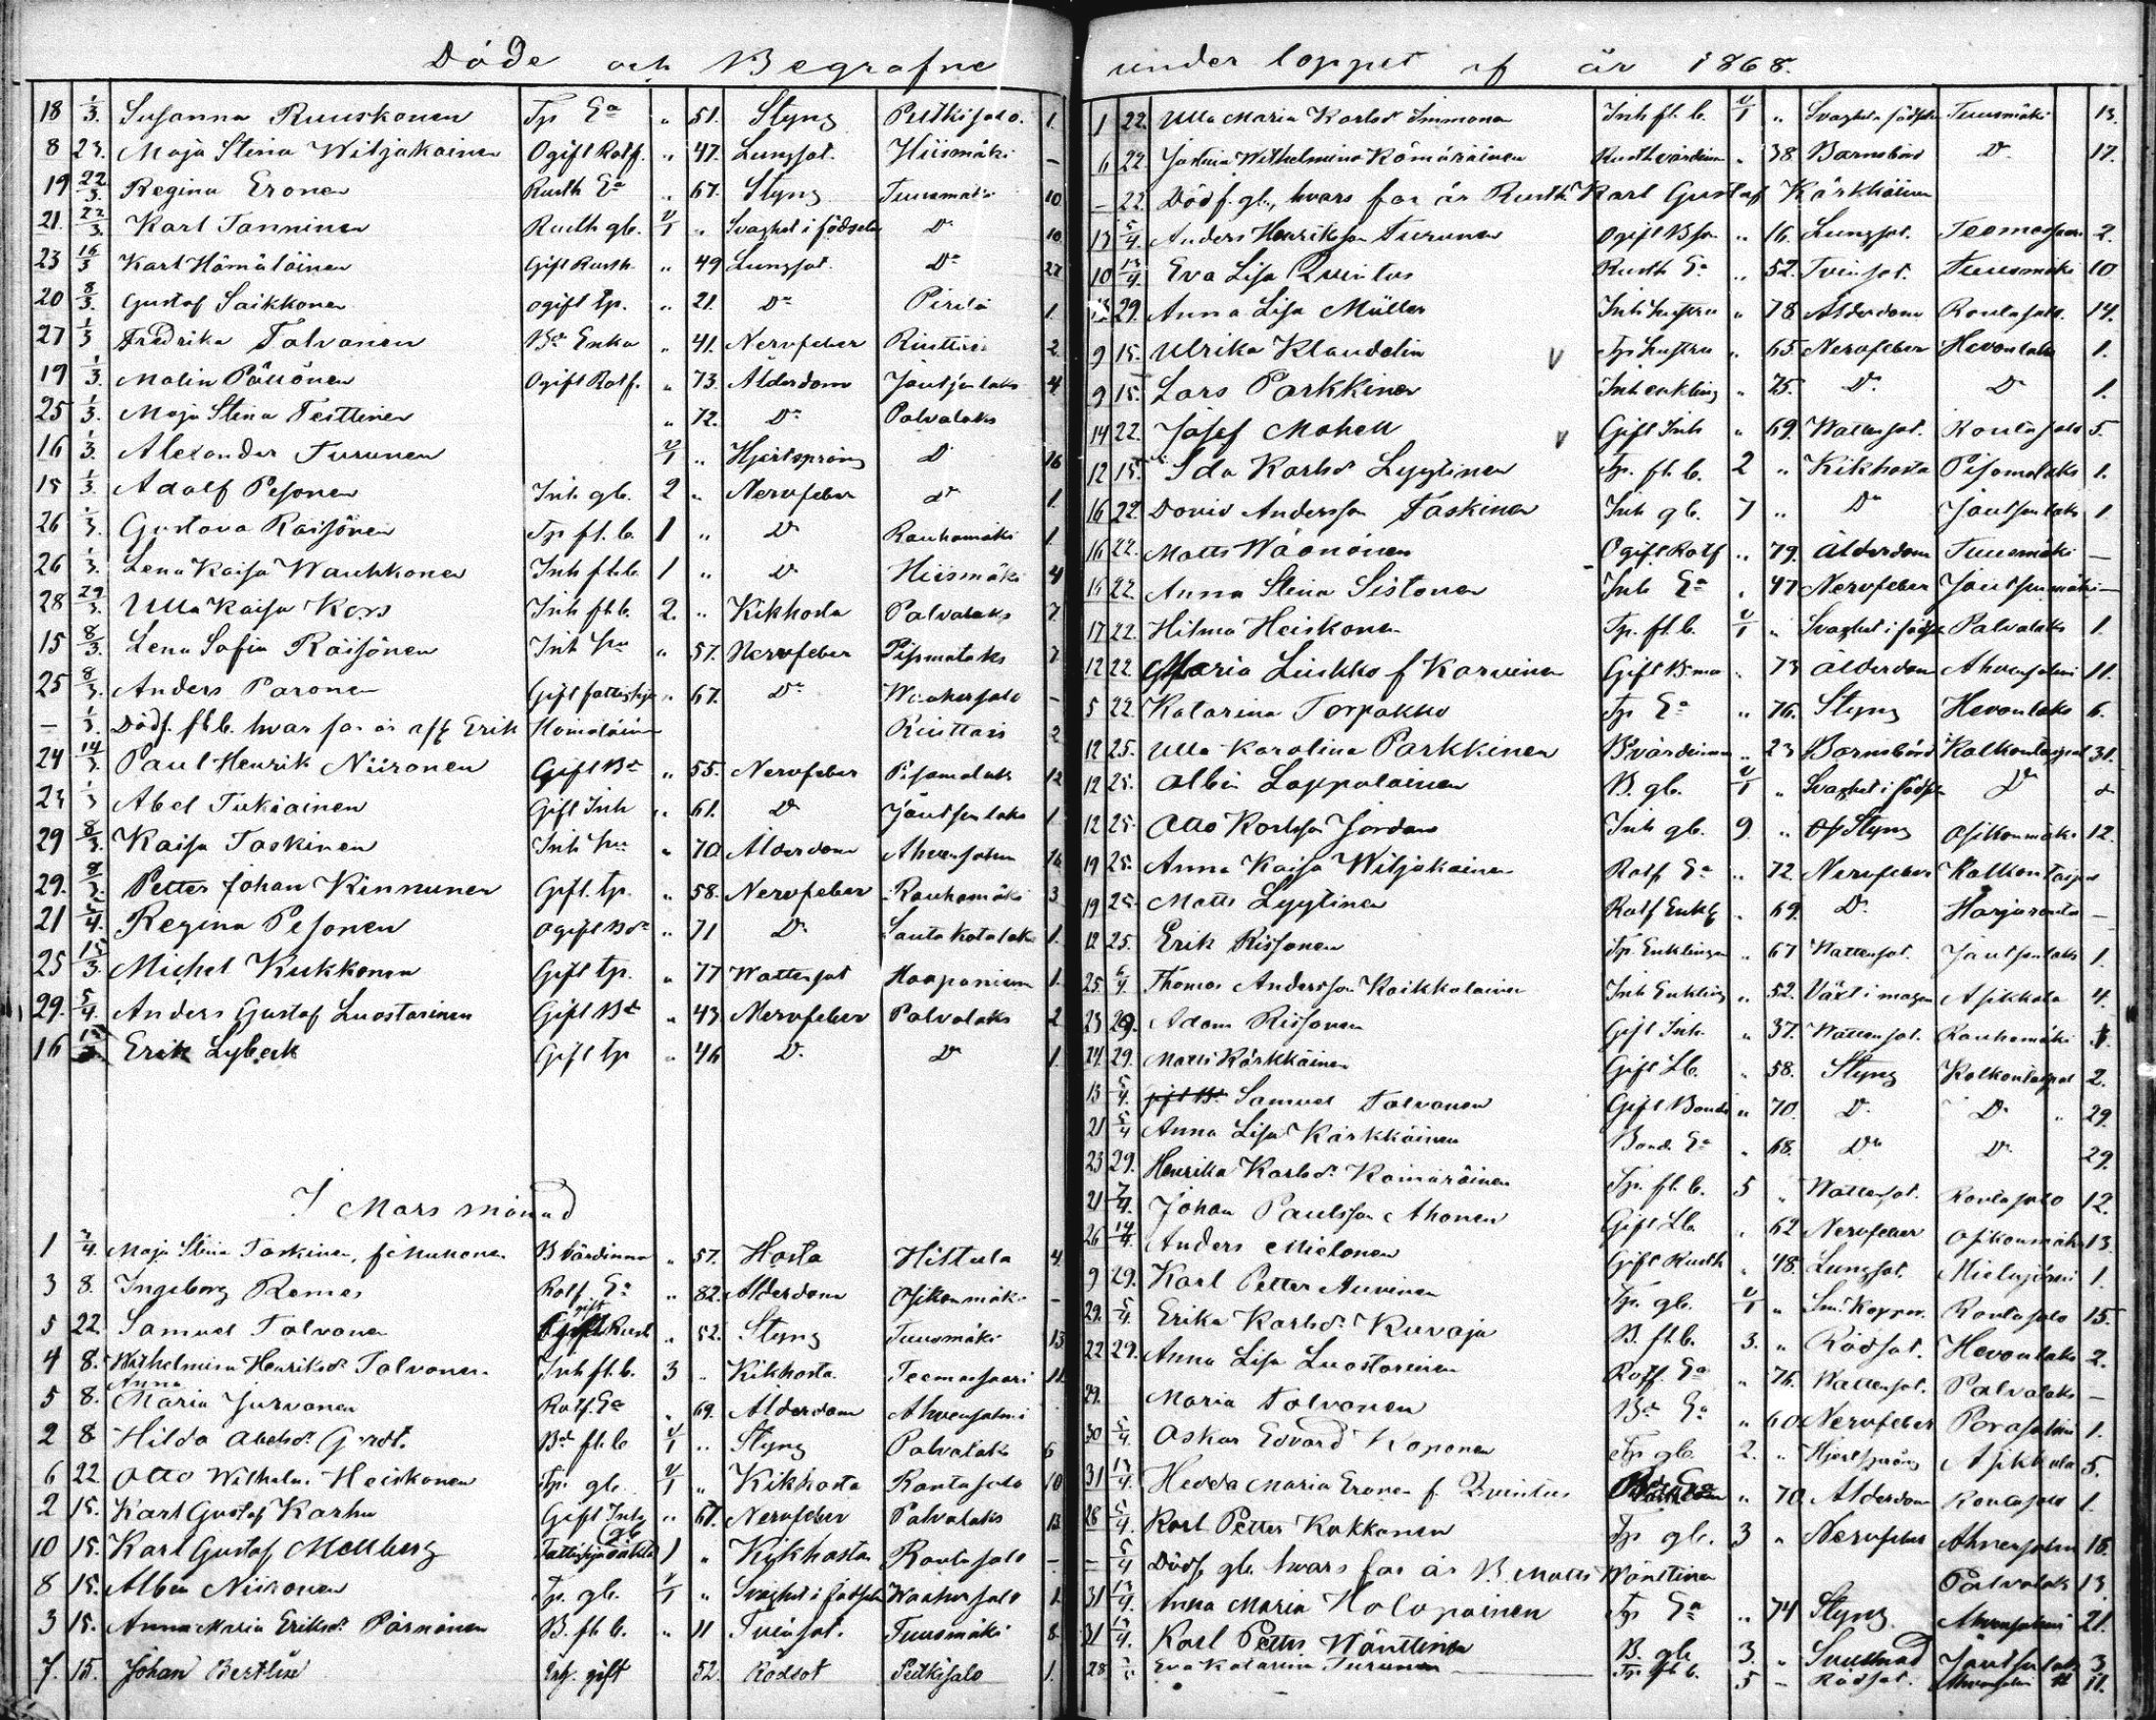 Döde och Begrafne under loppet af år 1868.
18 1/3. Susanna Ruuskonen Tp Ea " 51. Styng Putkisalo. 1.
8 23. Maja Stina Wiljakainen Ogift Rotf. " 47. Lungsot. Hiismäki –
19 22/3. Regina Eronen Rusth Ea " 67. Styng Tuusmäki 10
21. 22/3. Karl Tanninen Rusth gb. 1/1 " Svaghet i födseln Do 10
23 16/3 Karl Hämäläinen Gift Rusth. " 49 Lungsot. Do 27
20 8/3. Gustaf Saikkonen ogift tp. " 21. Do Pirilä 1.
27 1/3 Fredrika Talvanen Bde Enka " 41. Nervfeber Ruittais 2.
19 1/3. Malin Pällönen Ogift Rotf. " 73. Ålderdom Jäntsenlaks 4
25 1/3. Maja Stina Teittinen " 72. Do Palvalaks
16 1/3. Alexander Turunen 1/1 " Hjertsprång D 16
15 1/3. Adolf Pesonen Inh gb. 2 " Nervfeber do 1.
26 1/3. Gustava Räisönen Tp fl. b. 1 " Do Rauhamäki 1.
26 1/3. Lena Kaisa Wauhkonen Inh fl.b. 1 " Do Hiismäki 4
28 29/3. Ulla Kaisa Kors Inh fl.b. 2. " Kikhosta Palvalaks 7
15 8/3. Lena Sofia Räisönen Inh hu " 57. Nervfeber Pisamalaks 7
25 8/3. Anders Paronen Gift fattighjon " 67. Do Waahersalo –
– 1/3. Dödf. fl.b. hvars far är afs. Erik Hämäläinen Ruittais 2
24 14/3. Paul Henrik Niironen Gift Bd " 55. Nervfeber Pisamalaks 12
23 1/3 Abel Tukiainen Gift Inh " 61. Do Jäntsenlaks 1.
29 8/3. Kaisa Taskinen Inh hu " 70 Ålderdom Ahvensalmi 14
29. 8/3. Petter Johan Kinnunen Gift. tp. " 58. Nervfeber Rauhamäki 3
21 5/4. Regina Pesonen ogift Bdr " 71 Do Savukotalaks 1.
25 15/3. Michel Kukkonen Gift tp. " 77 Wattusot Haapaniemi 1.
29. 5/4. Anders Gustaf Luostarinen Gift Bd " 43 Nervfeber Palvalaks 2
16 15/3 Erik Lybeck Gift tp " 46 Do Do 1.
I Mars månad
1 7/4. Maja Stina Taskinen, f. Mukonen B Värdinna " 57. Hosta Hiltula 4.
3 8. Ingeborg Remes Rotf Ea " 82. Ålderdom Osikonmäki –
5 22. Samuel Talvanen gift Rusth " 52. Styng Tuusmäki 13
4 8. Wilhelmina Henriksdr Talvonen. Inh fl.b. 3 " Kikhosta. Teemassaari 11
5 8. Anna Maria Jurvanen Rotf. Ea " 69. Ålderdom Ahvensalmi
2 8 Hilda Abelsdr Gerdt. Bd fl.b 1/1 " Styng Palvalaks 6
6 22. Otto Wilhelm Heiskonen Tp. gb. 1/1 " Kikhosta Rantasalo 10
2 15. Karl Gustaf Karhu Gift Inh " 67. Nervfeber Palvalaks 13
10 15. Karl Gustaf Mellberg Fattighjon gb 1 " Kikhosta Rantasalo –
8 15. Albin Niironen Tp. gb. 1/1 " Svaghet i födseln Waahersalo 1
3 15. Anna Maria Eriksdr Pärnänen B. fl. b. " 11 Tvinsot. Tuusmäki 8.
7. 15. Johan Bertlin Inh. gift 52. Rödsot Putkisalo 1.
1 22. Ulla Maria Karlsdr Immonen Inh fl. b. 1/1 " Svaghet i födseln Tuusmäki 13.
6 22. Justina Wilhelmina Kämäräinen Rusthvärdinna " 38. Barnsbörd Do 17.
– 22. Dödf. gb., hvars far är Rusth Karl Gustaf Kärkkäinen
13 5/4. Anders Henriksson Turunen Ogift Bson " 16. Lungsot. Teemassaari 2.
10 13/4. Eva Lisa Qvintus Rusth Ea " 52. Tvinsot. Tuusmäki 10
29. Anna Lisa Müller Inh hustru " 78 Ålderdom Rantasalo. 14.
9 15. Ulrika Klaudelin V Tp hustru " 65. Nervfeber Hevonlaks 1.
9 15. Lars Parkkinen Inh enkling " 75. Do Do 1.
14 22. Josef Mahell V Gift Inh " 69. Wattusot. Rantasalo 5.
12 15. Ida Karlsdr Lyytinen Tp. fl. b. 2 " Kikhosta Pisamalaks 1.
16 22. David Andersson Taskinen Inh gb. 7 " Do Jäntsenlaks 1
16 22. Matts Wäänänen Ogift Rotf " 79. Ålderdom Tuusmäki –
16 22. Anna Stina Sistonen Inh Ea " 47 Nervfeber Jäntsenmäki –
17 22. Hilma Heiskonen Tp. fl. b. 1/1 " Svaghet i födseln Palvalaks 1.
12 22. Maria Liukko f Karvinen Gift B:mor " 73 Ålderdom Ahvensalmi 11.
5 22. Katarina Torpakko Tp Ea " 76. Styng Hevonlaks 6.
12 25. Ulla Karolina Parkkinen B:värdinna " 23 Barnsbörd Kalkontaipal 31.
12 25. Albin Lappalainen B. gb. 1/1 " Svaghet i födseln Do
12 25. Otto Karlsson Jordan Inh gb. 9 " Styng Osikonmäki 12.
19 25. Anna Kaisa Wiljakainen Rotf Ea " 72 Nervfeber Kalkontaipal
19 25. Matts Lyytinen Rotf Enkl " 69. Do Harjuranta –
12 25. Erik Rissonen Tp. Enklingen " 67 Wattusot. Jäntsenlaks 1.
25 6/4. Thomas Andersson Kaikkolainen Inh Enkling " 52. Växt i magen Asikkala 4.
23 29. Adam Rissonen Gift Inh. " 37. Wattusot. Rauhamäki 1.
24. 29. Matts Kärkkäinen Gift Lb. " 58. Styng Kalkontaipal 2.
13 5/4. Samuel Talvanen Gift Bonde " 70. Do Do " 29.
21 5/4 Anna Lisa Kärkkäinen Bond. Ea " 68. Do Do 29.
23 29. Henrika Karlsdr Kämäräinen Tp. fl. b. 5 " Wattusot. Rantasalo 12.
21 7/4. Johan Paulsson Ahonen Gift Lb " 62 Nervfeber Osikonmäki 13.
26 14/4. Anders Mielonen Gift Rusth " 48. Lungsot. Mielujärvi 1.
9 29. Karl Petter Auvinen Tp. gb. 1/1 " Sm. Koppor. Rantasalo 15.
29. 5/4. Erika Karlsdr Kuvaja B. fl.b. 3. " Rödsot. Hevonlaks 2.
22 29. Anna Lisa Luostarinen Rotf. Ea " 76. Wattusot. Palvalaks –
29. Maria Talvanen Bd Ea " 60 Nervfeber Porosalmi 1.
30 5/4. Oskar Edvard Koponen Tp gb 2. " Hjertsprång Asikkala 5.
31 13/4. Hedda Maria Eronen f. Qvintus " 70. Ålderdom Rantasalo 1.
28 5/4. Karl Petter Kukkonen Tp gb. 3 " Nervfeber Ahvensalmi 18.
– 5/4 Dödf. gb hvars far är B. Matts Wänttinen Palvalaks 13
31 13/4. Anna Maria Holopainen Tp Ea " 74 Styng Ahvensalmi 21.
31 13/4. Karl Petter Wänttinen B. gb 3. " Jäntsenlaks 3
28 Eva Katarina Turunen Tp. fl. b. 5 – Rödsot. Ahvensalmi 11.